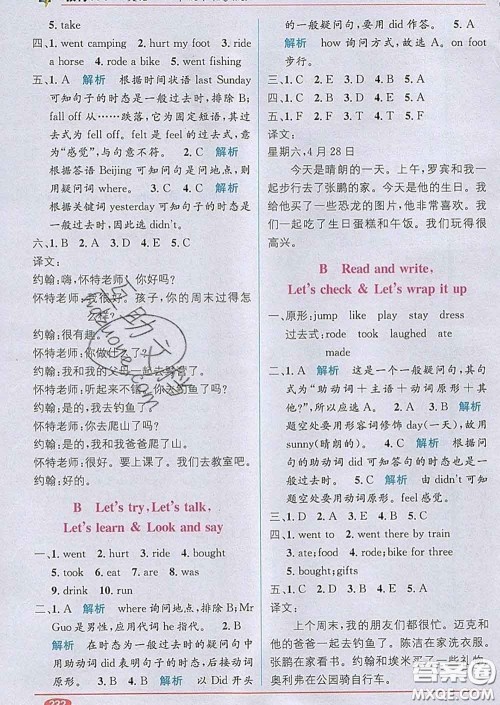 5. take
四、1. went camping 2. hurt my foot 3. ride
a horse 4. rode a bike 5. went fishing
五、1. A 解析 根据时间状语 last Sunday
可知句子的时态是一般过去时,排除 B;
fall off 从……跌落,它为固定短语,其过
去式为 fell off. felt 是 feel 的过去式,
意为“感觉”,与句意不符。 2. C 解析
根据答语 Beijing 可知问句是问地点,则
用疑问词 where。 3. A 4. C 解析
根据关键词 yesterday 可知句子的时态是
一般过去时,因此选 didn't。
六、1. B 2. A 3. D 4. E 5. C
译文:
约翰:嗨,怀特老师!你好吗?
怀特老师:我很好。孩子,你的周末过得怎
么样?
约翰:很有趣。
怀特老师:你做什么了?
约翰:我和我的父母一起去野营了。
怀特老师:听起来不错!你去钓鱼了吗?
约翰:是的,我去钓鱼了。
约翰:是的,我和爸爸爬了山。
怀特老师:很好。要上课了。我们去教室吧。
约翰:好的。
B Let's try, Let's talk,
Let's learn & Look and say
一、1. went 2. hurt 3. ride 4. bought
5. took 6. can 7. ate 8. was
9. drink 10. run
二、1. A 解析 where 询问地点,排除 B; Mr
Guo 是男性,应用代词 he 指代。 2. A
解析 在时态为一般过去时的疑问句中
用助动词 did 表明句子的时态,后接动词
原形。 3. B 4. A 解析 以 Did 开头
222
的一般疑问句,要用 did 作答。 5. A
解析 询问方式,故选 A。on foot
步行。
三、1. C 2. B 3. B 4. B 5. A
四、1. C 2. D 3. B 4. E 5. A
五、1. F 2. T 3. T 4. T 5. F
译文:
星期六,4 月 28 日
今天是晴朗的一天。上午,罗宾和我一
起步行去了张鹏的家。今天是他的生日。我
给他买了一些恐龙的图片,他非常喜欢。我
们一起吃了生日蛋糕和午饭。我们玩得很
高兴。
B Read and write,
Let's check & Let's wrap it up
一、原形:jump like play stay dress
过去式:rode took laughed ate
made
二、1. A 解析 这是一个一般疑问句,其句
式为“助动词+主语+动词原形+其
他?”,所以应选 A。 2. A 解析 根据
题意空处要用形容词修饰 day(一天),故
用 sunny(晴朗的)。 3. A 4. B 解析
根据问句的助动词 did 可知答句的时态
是一般过去时。 5. C 解析 由 didn't 可知
题空处要用动词原形。feel 感觉。
三、1. D 2. A 3. F 4. E 5. C
四、1. took 2. at 3. rode; bike for three
4. ate; drank 5. bought; gifts
五、1. C 2. D 3. B 4. E 5. A
译文:
上个周末,我的朋友们都很忙。迈克和
他的爸爸一起去钓鱼了。陈洁在家洗衣服。
张鹏在家看书。约翰和埃米买了一些礼物。
奥利弗在公园骑自行车。
答案圈
MXQE.COM